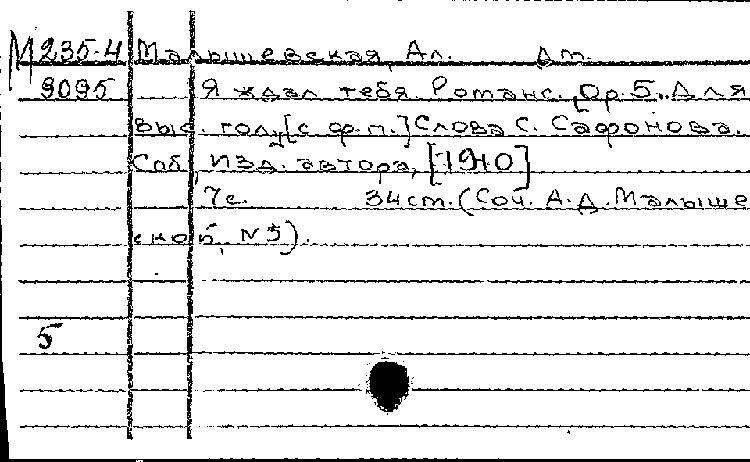 М 235-4 Малышевская, Ал. Дм.
9095 Я ждал тебя. Романс. Ор. 5. Для
выс. гол. [с ф.п.] Слова С. Сафонова.
Спб, изд. автора, [1910]
7 с. 34 см. (Соч. А.Д. Малыше
ской, №5).
5